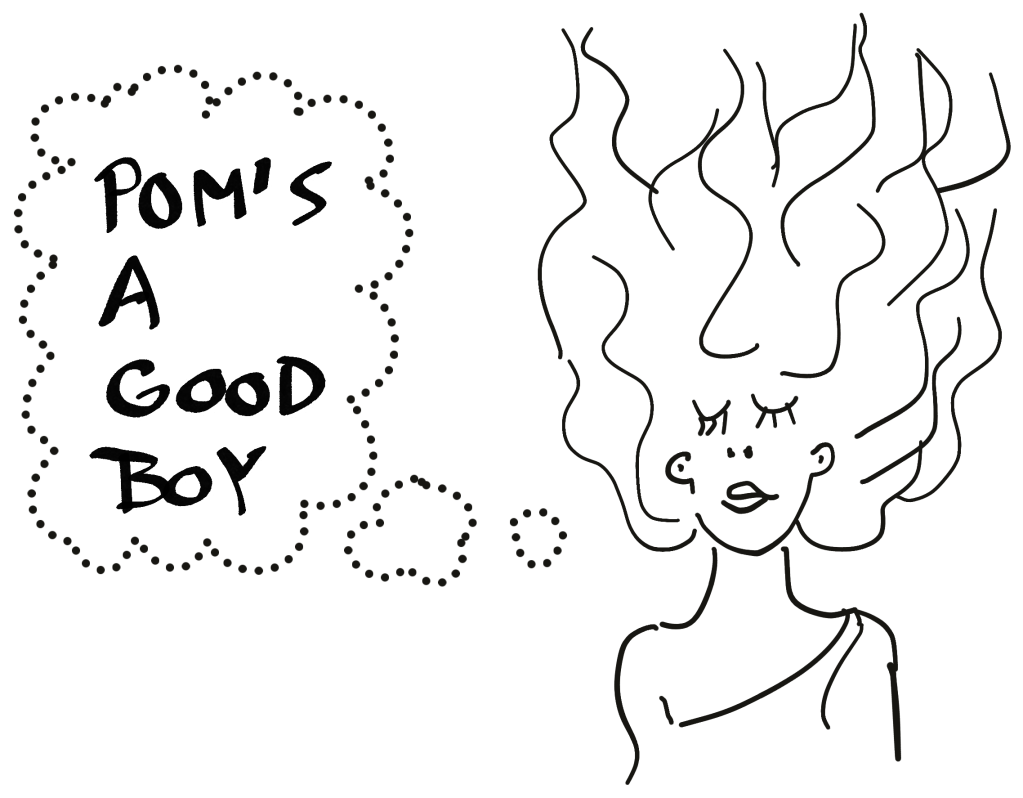 POM'S
A
GOOD
BOY